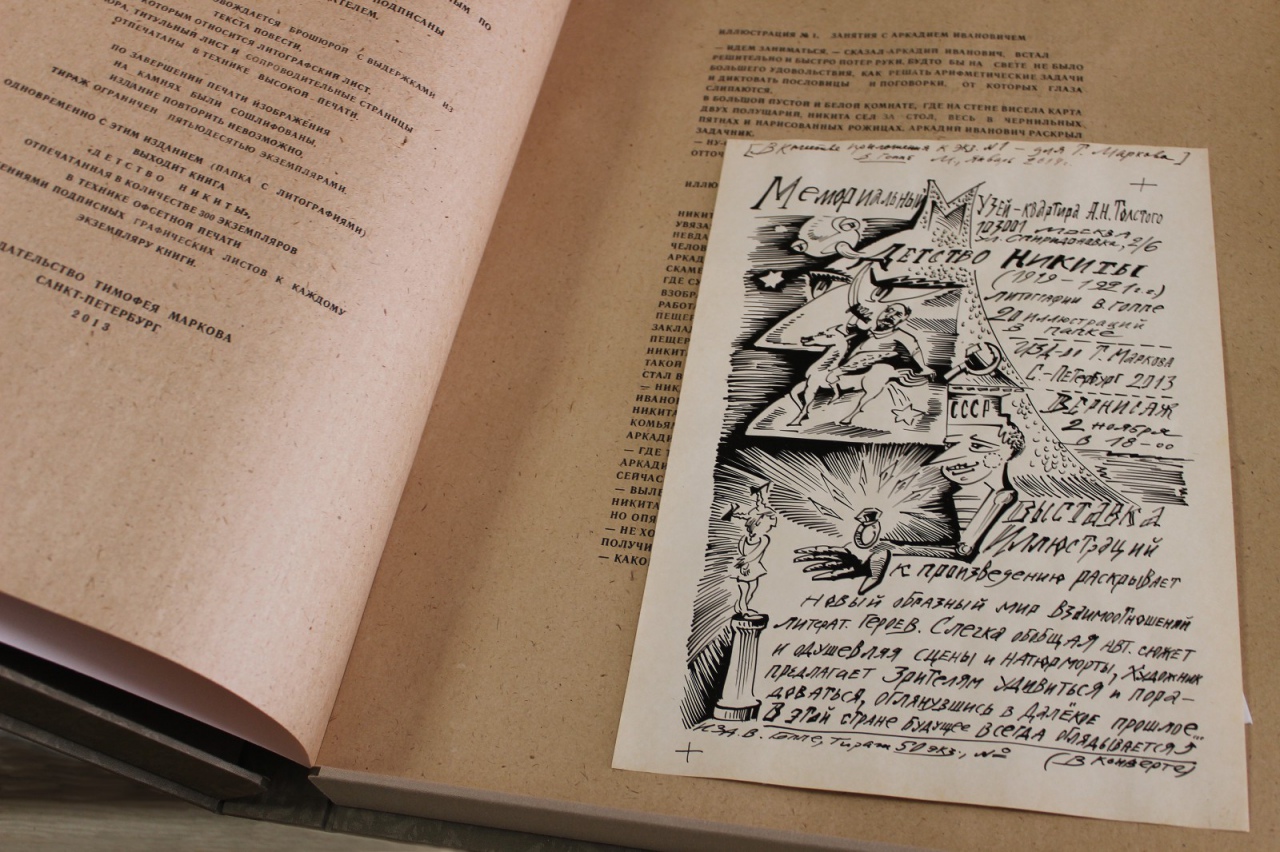 ЫМ ПО
ПОДПИСАНЫ
АТЕЛЕМ.
ВОЖДАЕТСЯ БРОШЮРОЙ С ВЫДЕРЖКАМИ ИЗ
ТЕКСТА ПОВЕСТИ,
КОТОРЫМ ОТНОСИТСЯ ЛИТОГРАФСКИЙ ЛИСТ.
ОРА, ТИТУЛЬНЫЙ ЛИСТ И СОПРОВОДИТЕЛЬНЫЕ СТРАНИЦЫ
ОТПЕЧАТАНЫ В ТЕХНИКЕ ВЫСОКОЙ ПЕЧАТИ.
ПО ЗАВЕРШЕНИИ ПЕЧАТИ ИЗОБРАЖЕНИЯ
НА КАМНЯХ БЫЛИ СОШЛИФОВАНЫ.
ИЗДАНИЕ ПОВТОРИТЬ НЕВОЗМОЖНО.
ТИРАЖ ОГРАНИЧЕН ПЯТЬЮДЕСЯТЬЮ ЭКЗЕМПЛЯРАМИ.
ОДНОВРЕМЕННО С ЭТИМ ИЗДАНИЕМ (ПАПКА С ЛИТОГРАФИЯМИ)
ВЫХОДИТ КНИГА
«ДЕТСТВО НИКИТЫ»,
ОТПЕЧАТАННАЯ В КОЛИЧЕСТВЕ 300 ЭКЗЕМПЛЯРОВ
В ТЕХНИКЕ ОФСЕТНОЙ ПЕЧАТИ
ЕНИЯМИ ПОДПИСНЫХ ГРАФИЧЕСКИХ ЛИСТОВ К КАЖДОМУ
ЭКЗЕМПЛЯРУ КНИГИ.
ДАТЕЛЬСТВО ТИМОФЕЯ МАРКОВА
САНКТ-ПЕТЕРБУРГ
2013
ИЛЛЮСТРАЦИЯ № 1. ЗАНЯТИЯ С АРКАДИЕМ ИВАНОВИЧЕМ
— ИДЕМ ЗАНИМАТЬСЯ, — СКАЗАЛ АРКАДИЙ ИВАНОВИЧ, ВСТАЛ
РЕШИТЕЛЬНО И БЫСТРО ПОТЕР РУКИ, БУДТО БЫ НА СВЕТЕ НЕ БЫЛО
БОЛЬШЕГО УДОВОЛЬСТВИЯ, КАК РЕШАТЬ АРИФМЕТИЧЕСКИЕ ЗАДАЧИ
И ДИКТОВАТЬ ПОСЛОВИЦЫ И ПОГОВОРКИ, ОТ КОТОРЫХ ГЛАЗА
СЛИПАЮТСЯ.
В БОЛЬШОЙ ПУСТОЙ И БЕЛОЙ КОМНАТЕ, ГДЕ НА СТЕНЕ ВИСЕЛА КАРТА
ДВУХ ПОЛУШАРИЙ, НИКИТА СЕЛ ЗА СТОЛ, ВЕСЬ В ЧЕРНИЛЬНЫХ
ПЯТНАХ И НАРИСОВАННЫХ РОЖИЦАХ. АРКАДИЙ ИВАНОВИЧ РАСКРЫЛ
ЗАДАЧНИК.
— НУ-
ОТТОЧ
ИЛЛЮ
НИКИТ
УВЯЗА
НЕВДА
ЧЕЛОВ
АРКАД
СКАМЕ
ГДЕ СУ
ВЗОБРА
РАБОТА
ПЕЩЕР
ЗАКЛАД
ПЕЩЕР
НИКИТ
ТАКОЙ
СТАЛ В
— НИК
ИВАНО
НИКИТА
КОМЬЯ
АРКАДИ
— ГДЕ Т
АРКАДИ
СЕЙЧАС
— ВЫЛЕ
НИКИТА
НО ОПЯ
— НЕ ХО
ПОЛУЧИ
— КАКО
[В качестве приложения к экз. №1 — для Т. Маркова]
В. Гоппе М., Январь 2014г.
Мемориальный Музей-квартира А.Н. Толстого
103001 Москва,
ул. Спиридоновка, 2/6
Детство Никиты
(1919 - 1921 г.г.)
Литографии В. Гоппе
20 иллюстраций
в папке
Изд-во Т. Маркова
С.-Петербург 2013
СССР
Вернисаж
2 ноября
в 18-00
Выставка
Иллюстраций
к произведению раскрывает
новый образный мир взаимоотношений
литерат. героев. Слегка обобщая авт. сюжет
и одушевляя сцены и натюрморты, художник
предлагает зрителям удивиться и пора-
доваться, оглянувшись в далёкое прошлое...
В этой стране будущее всегда оглядывается
Изд. В. Гоппе, Тираж 50 экз., № (в конверте)